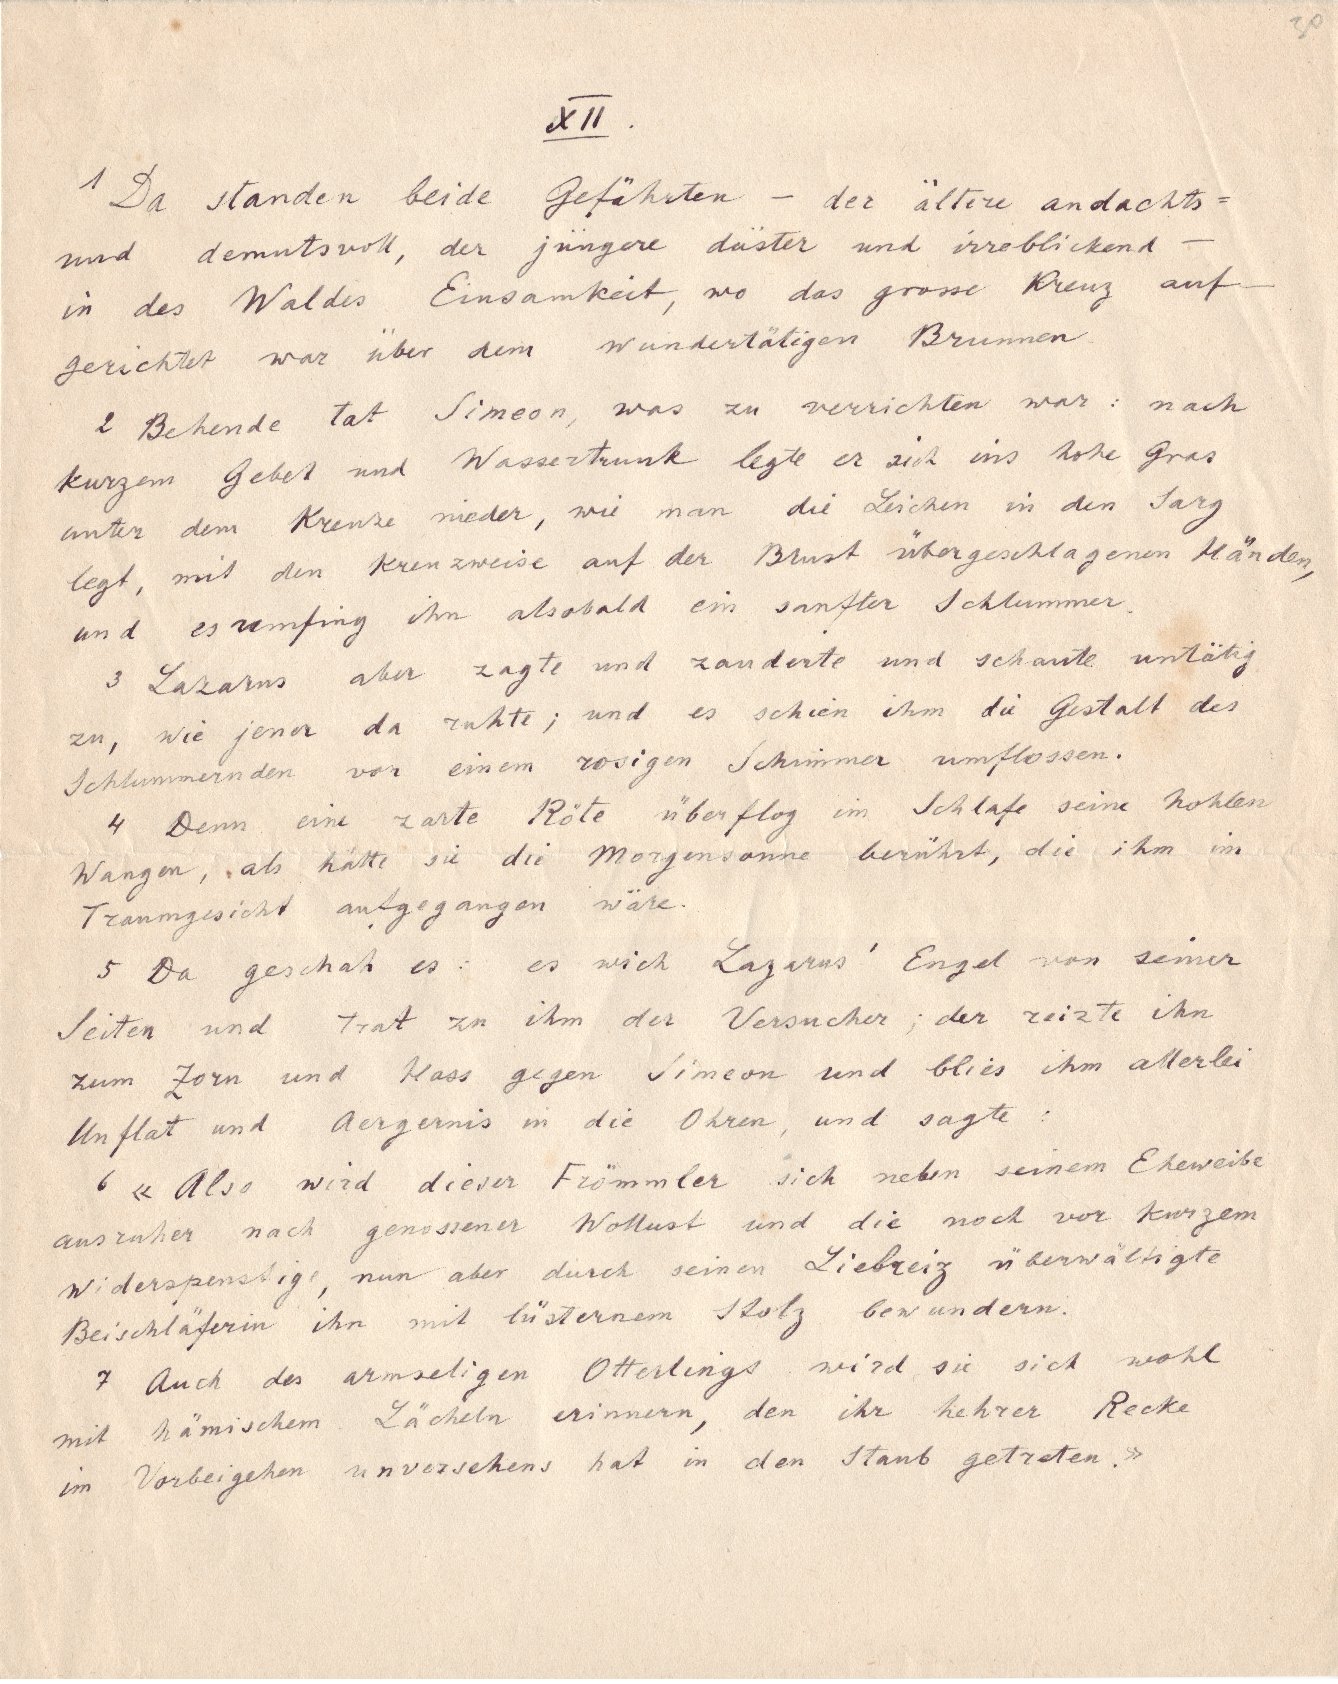 30
XII.
1 Da standen beide Gefährten – der ältere andachts=
und demutsvoll, der jüngere düster und irreblickend –
in des Waldes Einsamkeit, wo das grosse Kreuz auf-
gerichtet war über dem wundertätigen Brunnen
2 Behende tat Simeon, was zu verrichten war: nach
kurzem Gebet und Wassertrunk legte er sich ins hohe Gras
unter dem Kreuze nieder, wie man die Leichen in den Sarg
legt, mit den kreuzweise auf der Brust übergeschlagenen Händen,
und es umfing ihn alsobald ein sanfter Schlummer.
3 Lazarus aber zagte und zauderte und schaute untätig
zu, wie jener da ruhte; und es schien ihm die Gestalt des
Schlummernden von einem rosigen Schimmer umflossen.
4 Denn eine zarte Röte überflog im Schlafe seine hohlen
Wangen, als hätte sie die Morgensonne berührt, die ihm im
Traumgesicht aufgegangen wäre.
5 Da geschah es: es wich Lazarus' Engel von seiner
Seiten und trat zu ihm der Versucher; der reizte ihn
zum Zorn und Hass gegen Simeon und blies ihm allerlei
Unflat und Aergernis in die Ohren, und sagte:
6 «Also wird dieser Frömmler sich neben seinem Eheweibe
ausruhen nach genossener Wollust und die noch vor kurzem
widerspenstige, nun aber durch seinen Liebreiz überwältigte
Beischläferin ihn mit lüsternem Stolz bewundern.
7 Auch des armseligen Otterlings wird sie sich wohl
mit hämischem Lächeln erinnern, den ihr hehrer Recke
im Vorbeigehen unversehens hat in den Staub getreten.»